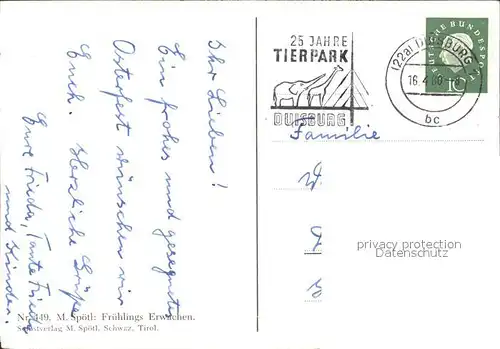 Ihr Lieben!
Ein frohes und gesegnetes
Osterfest wünschen wir
Euch. Herzliche Grüße
Eure Frieda, Tante Frieda
und Kinder.
Nr. 449. M. Spötl: Frühlings Erwachen.
Selbstverlag M. Spötl, Schwaz, Tirol.
25 JAHRE
TIERPARK
DUISBURG
(22a) DUISBURG
16.4.60
bc
DEUTSCHE BUNDESPOST
10
Familie
W.
privacy protection
Datenschutz